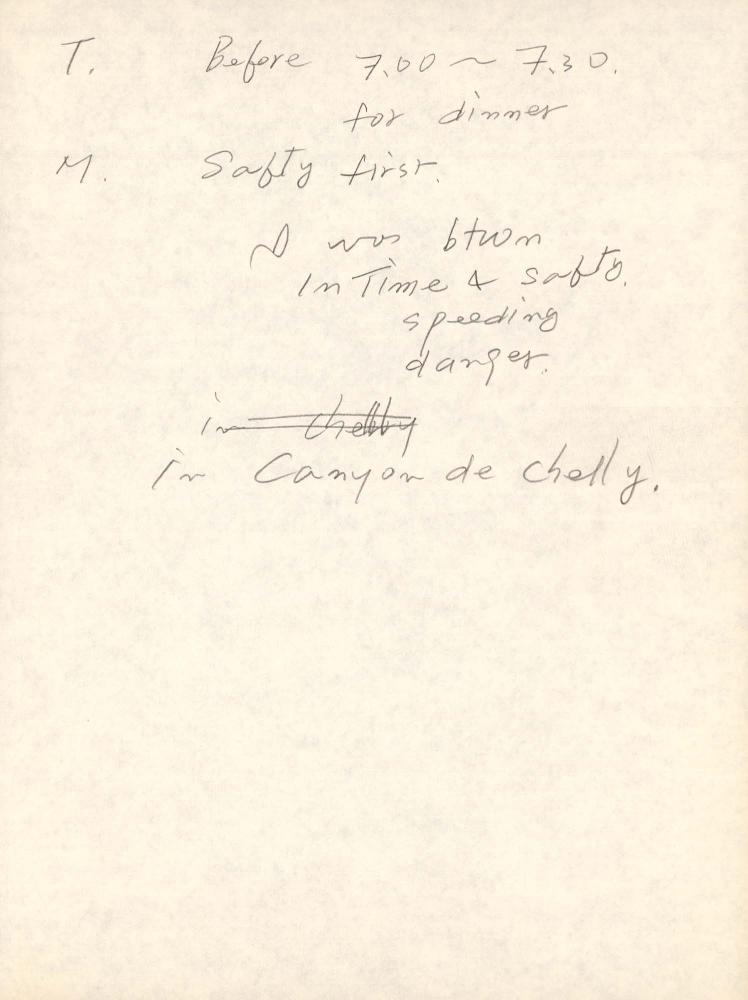 T. Before 7.00 ~ 7.30.
for dinner
M. Safty first.
I was btwn
In Time & safty.
speeding
danger.
in chelly
in Canyon de chelly.